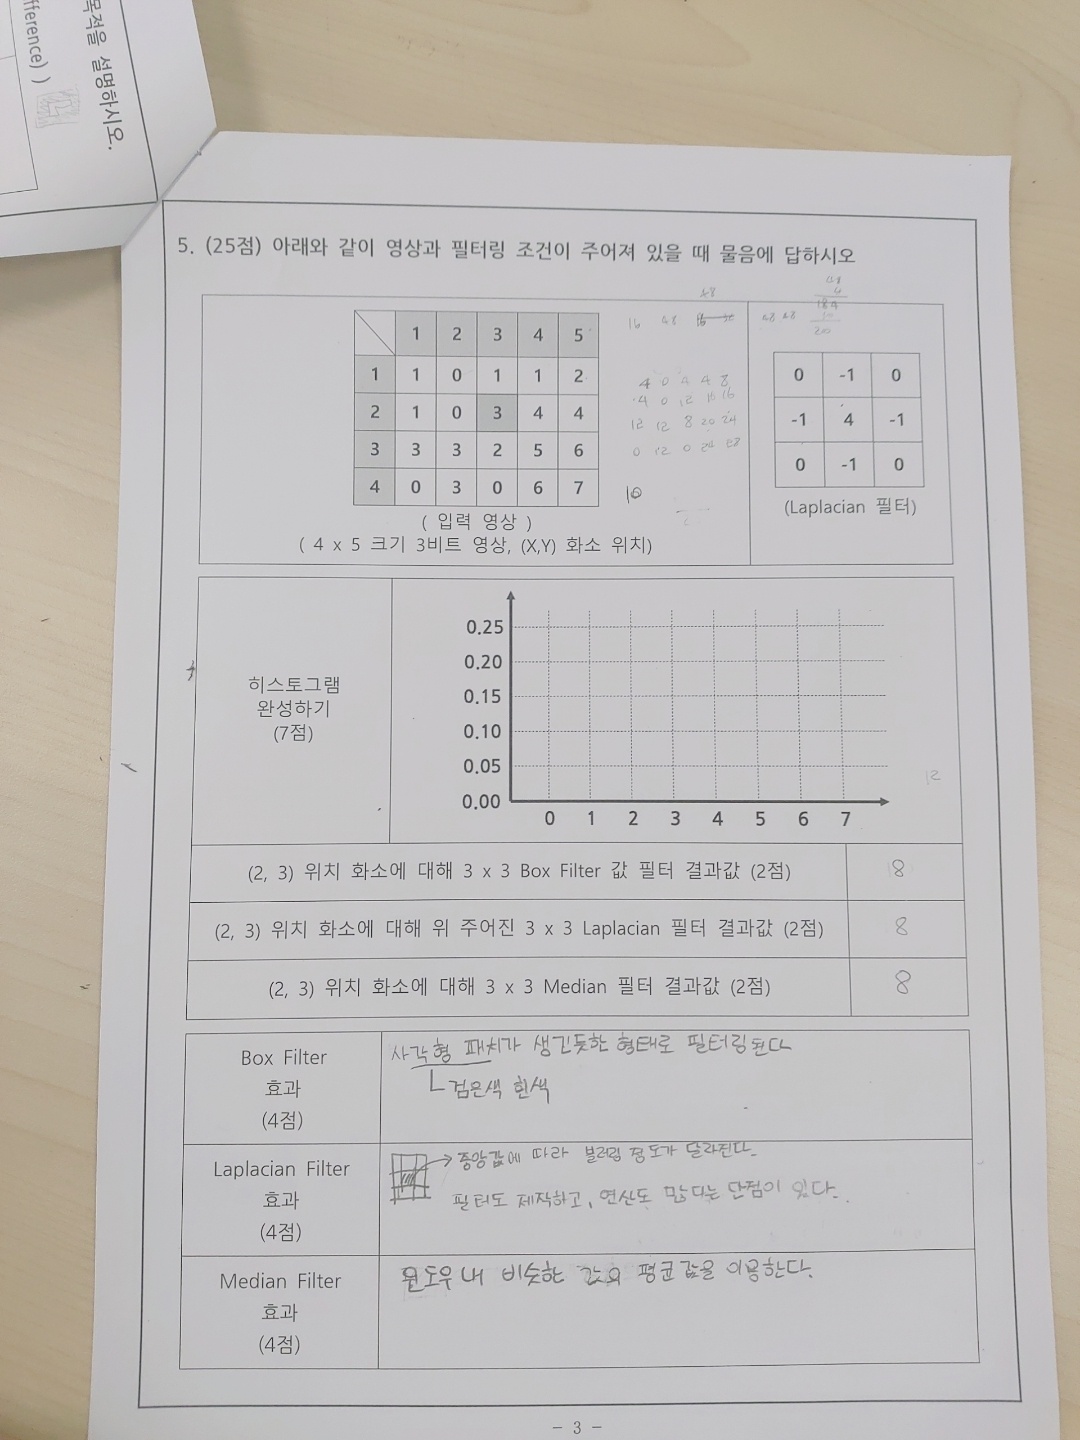 목적을 설명하시오.
fference) )
5. (25점) 아래와 같이 영상과 필터링 조건이 주어져 있을 때 물음에 답하시오
1 2 3 4 5
1 1 0 1 1 2
2 1 0 3 4 4
3 3 3 2 5 6
4 0 3 0 6 7
( 입력 영상 )
( 4 x 5 크기 3비트 영상, (X,Y) 화소 위치)
48
16 48
4 0 4 4 8
4 0 12 16 16
12 12 8 20 24
0 12 0 24 28
10
48 48
20
0 -1 0
-1 4 -1
0 -1 0
(Laplacian 필터)
히스토그램
완성하기
(7점)
0.25
0.20
0.15
0.10
0.05
0.00
0 1 2 3 4 5 6 7
12
(2, 3) 위치 화소에 대해 3 x 3 Box Filter 값 필터 결과값 (2점) 8
(2, 3) 위치 화소에 대해 위 주어진 3 x 3 Laplacian 필터 결과값 (2점) 8
(2, 3) 위치 화소에 대해 3 x 3 Median 필터 결과값 (2점) 8
Box Filter
효과
(4점)
사각형 패치가 생긴듯한 형태로 필터링된다
검은색 흰색
Laplacian Filter
효과
(4점)
중앙값에 따라 블러링 정도가 달라진다.
필터도 제작하고, 연산도 많다는 단점이 있다.
Median Filter
효과
(4점)
윈도우 내 비슷한 값의 평균값을 이용한다.
- 3 -